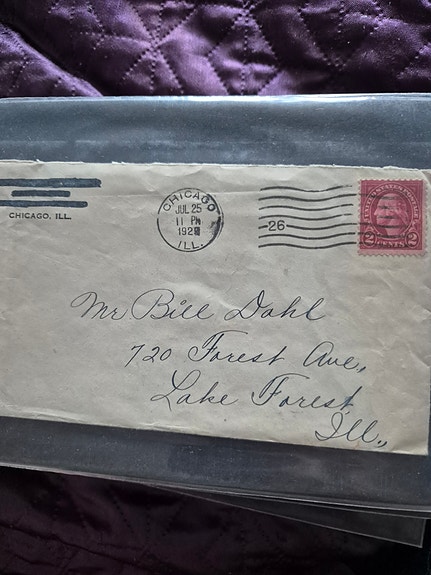 CHICAGO, ILL.
CHICAGO
JUL 25
11 PM
ILL.
26
UNITED STATES POSTAGE
2 CENTS 2
Mr. Bill Dahl
720 Forest Ave.,
Lake Forest,
Ill.,